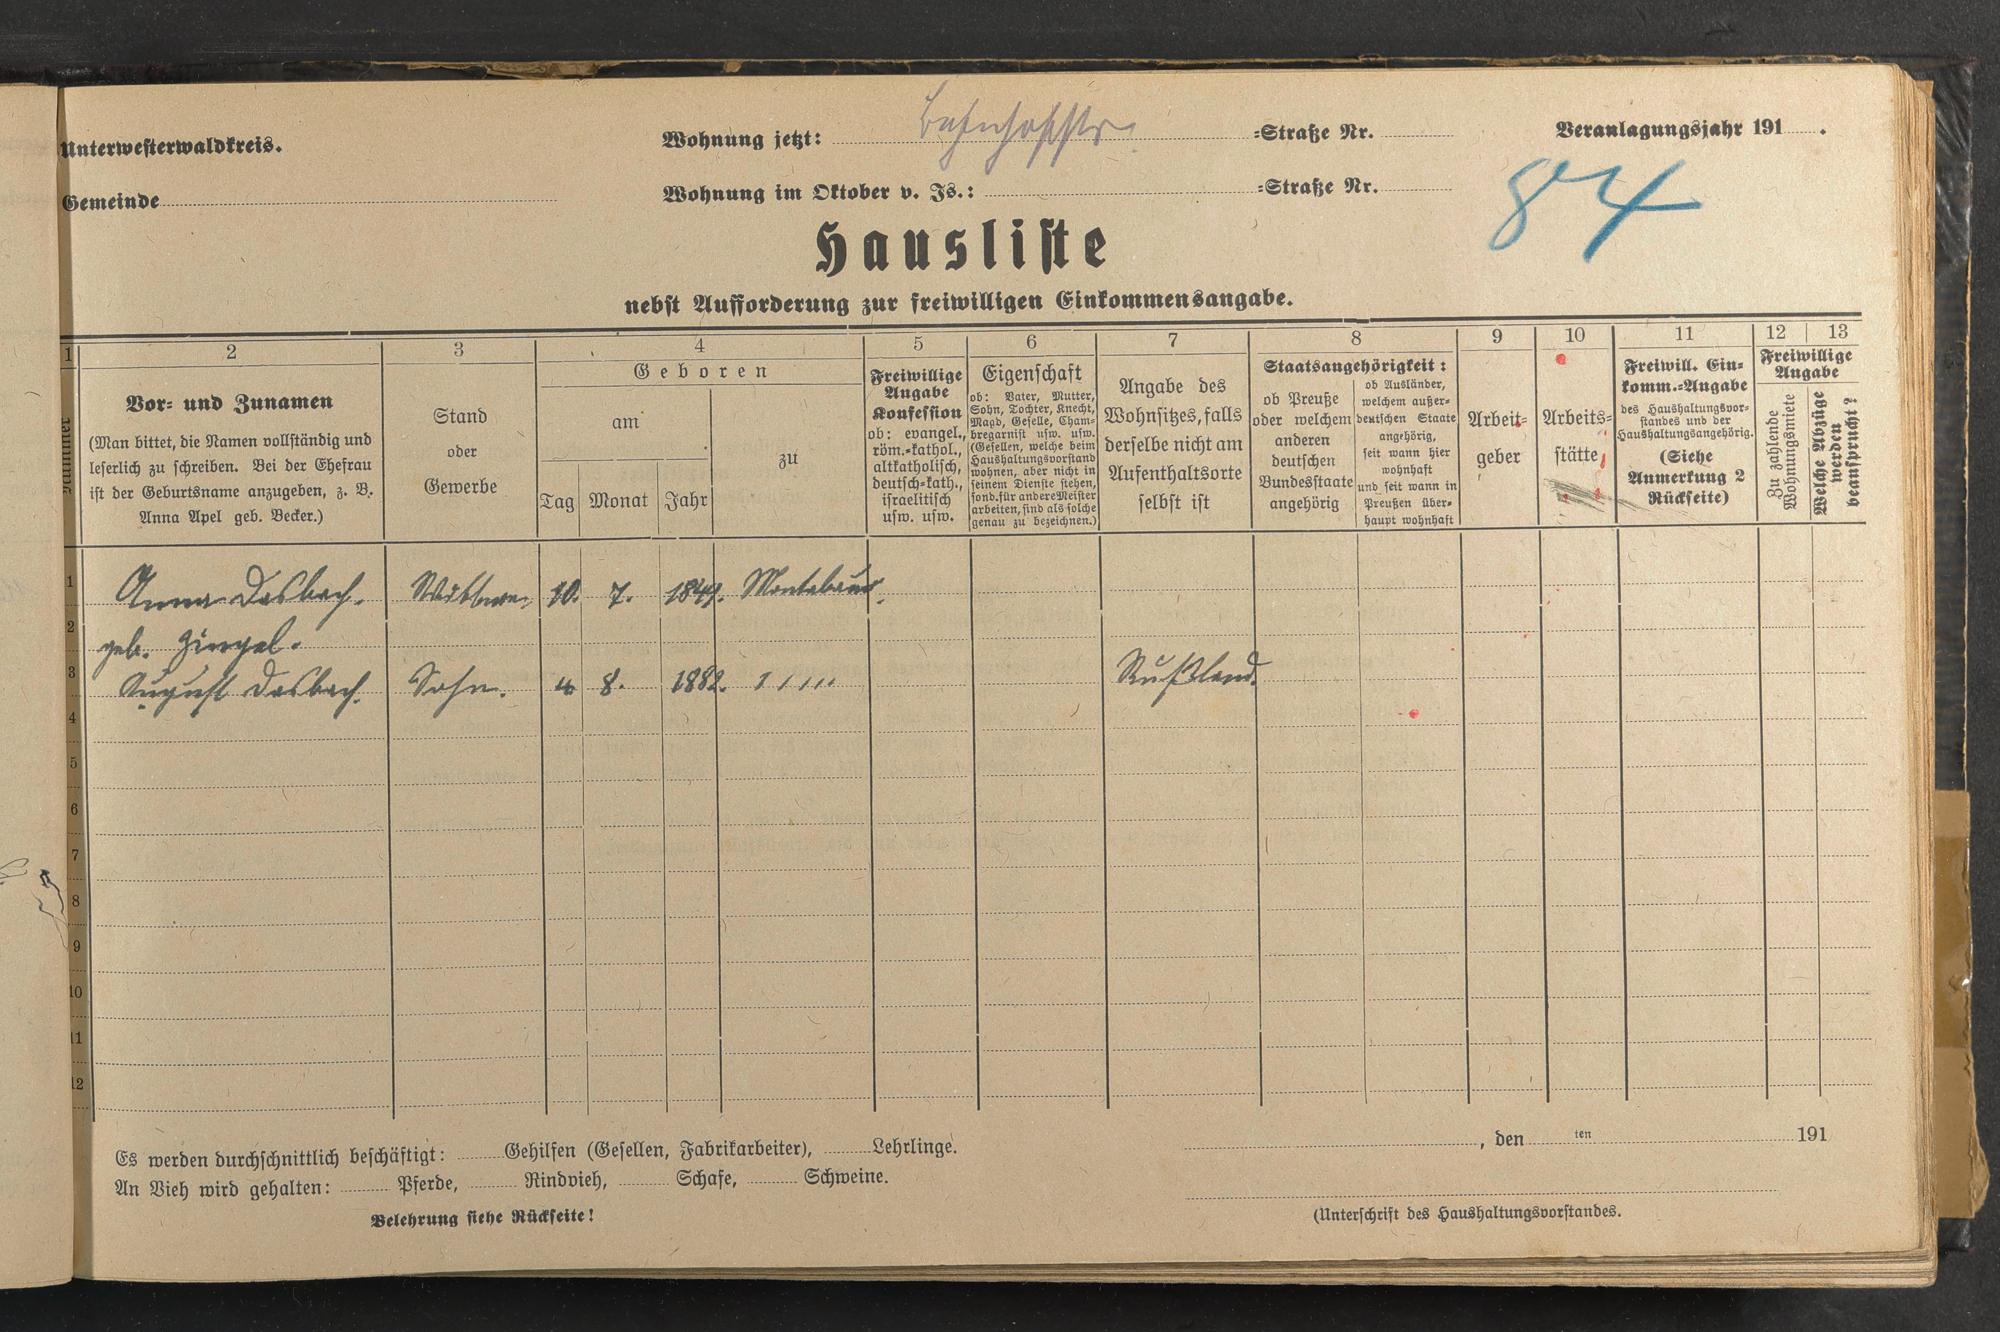 Unterwesterwaldkreis.
Wohnung jetzt: Bahnhofstr. -Straße Nr.
Veranlagungsjahr 191 .
Gemeinde
Wohnung im Oktober v. Js.: -Straße Nr.
84
Hausliste
nebst Aufforderung zur freiwilligen Einkommensangabe.
1 2 3 4 5 6 7 8 9 10 11 12 13
Nummer
Vor- und Zunamen
(Man bittet, die Namen vollständig und
leserlich zu schreiben. Bei der Ehefrau
ist der Geburtsname anzugeben, z. B.
Anna Apel geb. Becker.)
Stand
oder
Gewerbe
Geboren
am
Tag Monat Jahr
zu
Freiwillige
Angabe
Konfession
ob: evangel.,
röm.-kathol.,
altkatholisch,
deutsch-kath.,
israelitisch
usw. usw.
Eigenschaft
ob: Vater, Mutter,
Sohn, Tochter, Knecht,
Magd, Geselle, Cham-
bregarnist usw. usw.
(Gesellen, welche beim
Haushaltungsvorstand
wohnen, aber nicht in
seinem Dienste stehen,
sond. für andere Meister
arbeiten, sind als solche
genau zu bezeichnen.)
Angabe des
Wohnsitzes, falls
derselbe nicht am
Aufenthaltsorte
selbst ist
Staatsangehörigkeit:
ob Preuße
oder welchem
anderen
deutschen
Bundesstaate
angehörig
ob Ausländer,
welchem außer-
deutschen Staate
angehörig,
seit wann hier
wohnhaft
und seit wann in
Preußen über-
haupt wohnhaft
Arbeit-
geber
Arbeits-
stätte
Freiwill. Ein-
komm.-Angabe
des Haushaltungsvor-
standes und der
Haushaltungsangehörig.
(Siehe
Anmerkung 2
Rückseite)
Freiwillige
Angabe
Zu zahlende
Wohnungsmiete
Welche Abzüge
werden
beansprucht?
1 Anna Dasbach. Wittwe. 10. 7. 1849. Montabaur.
2 geb. Zingel.
3 August Dasbach. Sohn. 4 8. 1882. " " " Rußland.
4
5
6
7
8
9
10
11
12
Es werden durchschnittlich beschäftigt: Gehilfen (Gesellen, Fabrikarbeiter), Lehrlinge.
An Vieh wird gehalten: Pferde, Rindvieh, Schafe, Schweine.
Belehrung siehe Rückseite!
, den ten 191
(Unterschrift des Haushaltungsvorstandes.